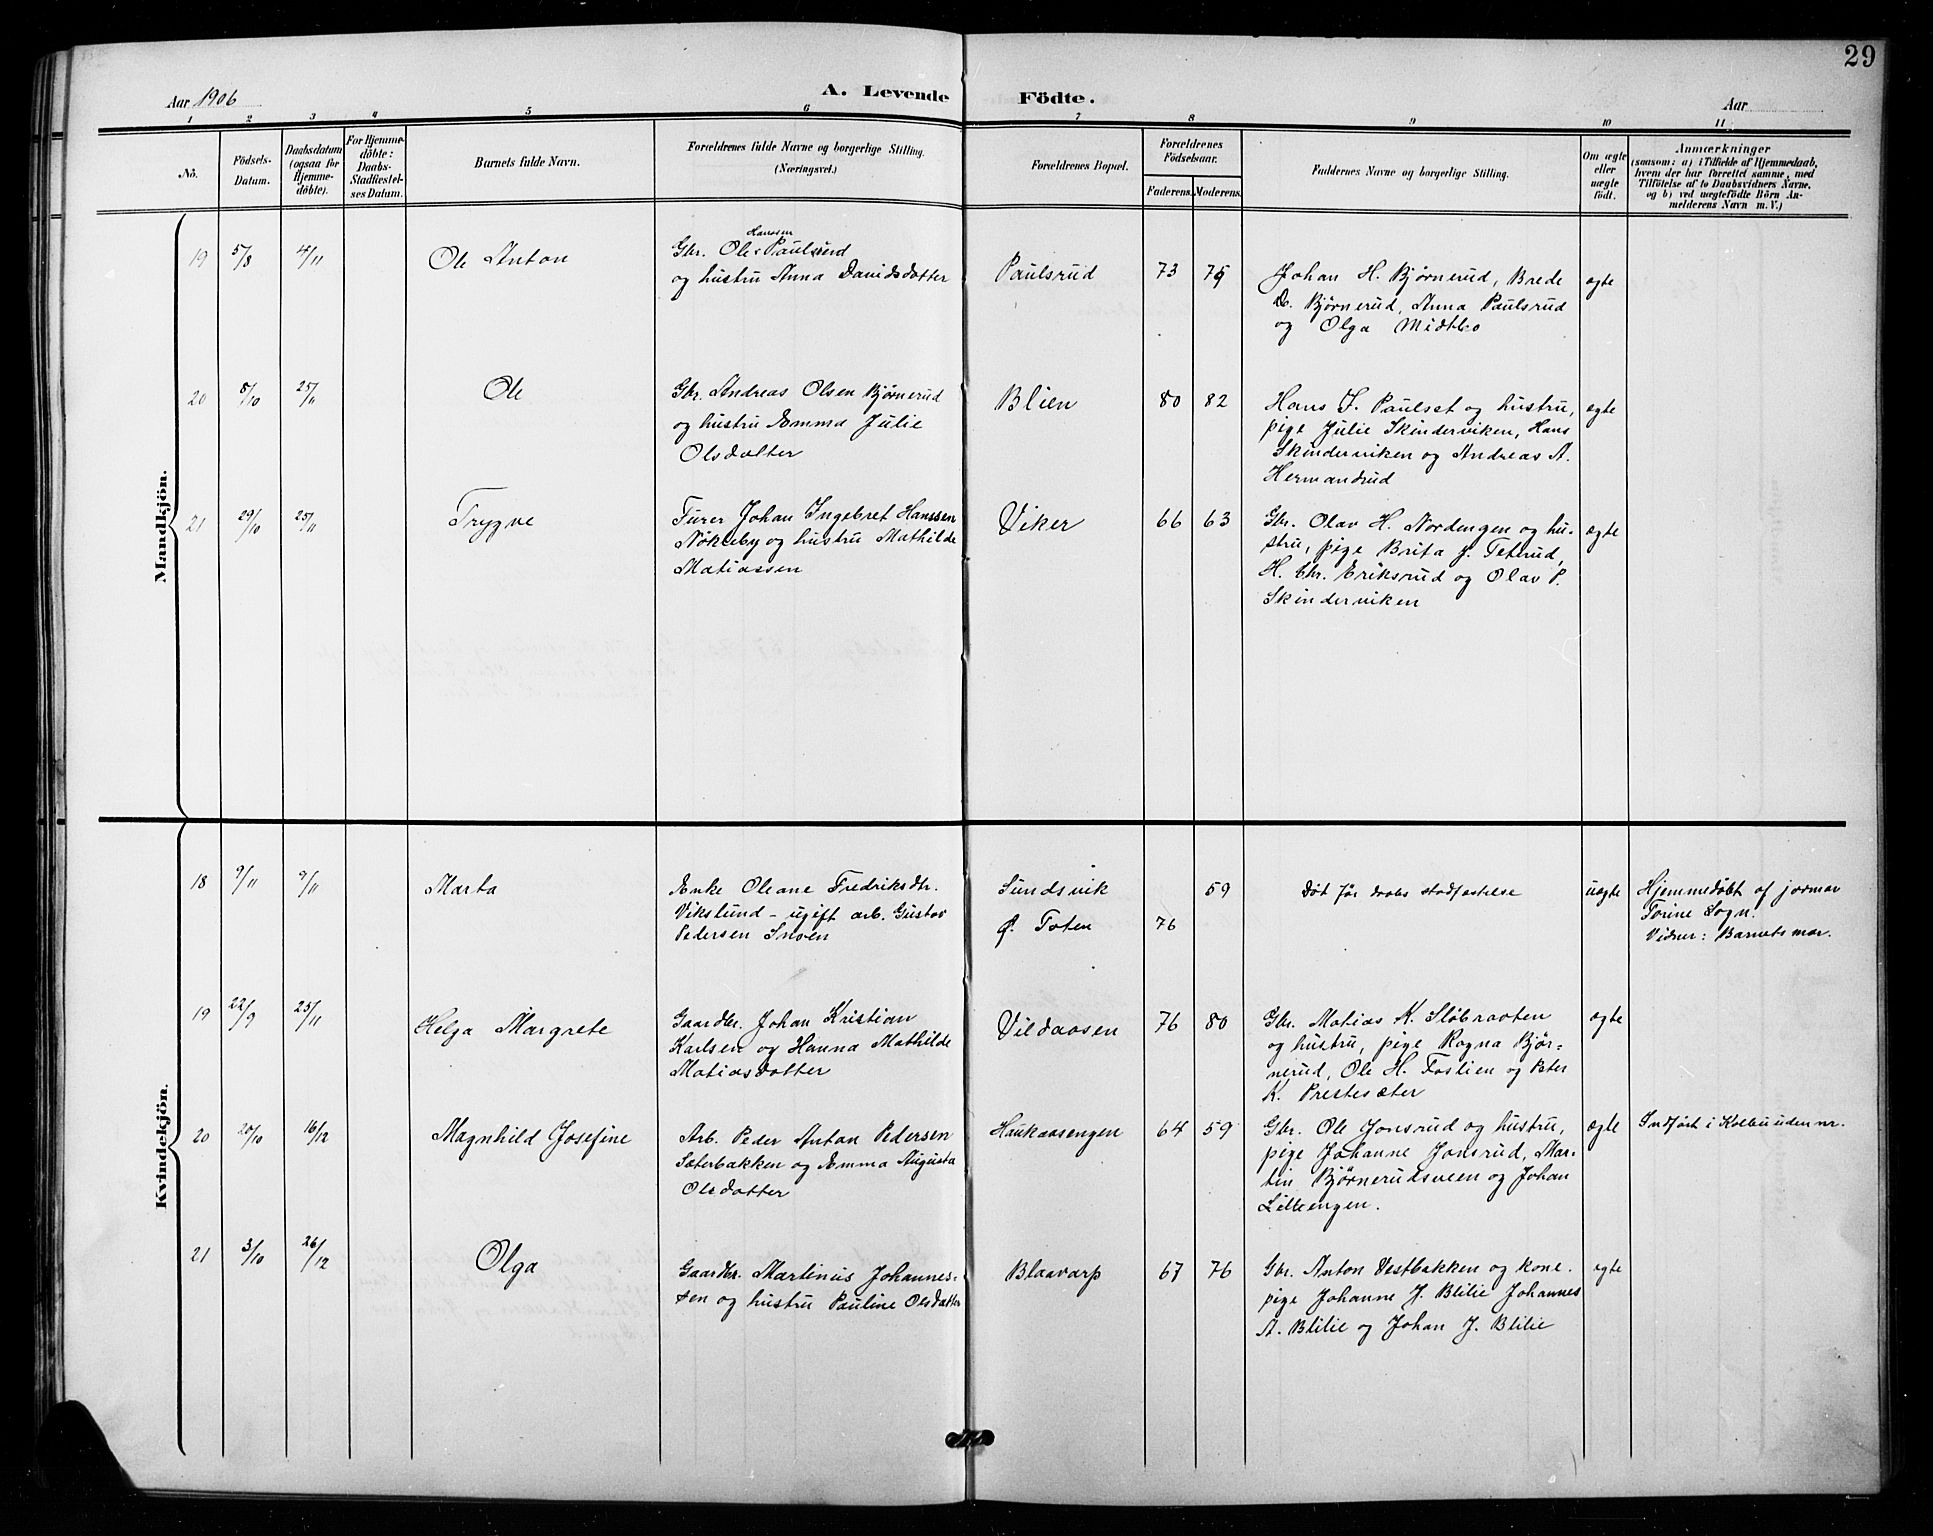 29
Aar 1906
A. Levende Födte.
Aar
1 2 3 4 5 6 7 8 9 10 11
Nô.
Födsels-Datum.
Daabsdatum (ogsaa for Hjemme-döbte).
For Hjemme-döbte: Daabs-Stadfæstelses Datum.
Barnets fulde Navn.
Forældrenes fulde Navne og borgerlige Stilling. (Næringsvei.)
Forældrenes Bopæl.
Forældrenes Födselsaar.
Faderens. Moderens.
Faddernes Navne og borgerlige Stilling.
Om ægte eller uægte födt.
Anmærkninger
(saasom: a) i Tilfælde af Hjemmedaab,
hvem der har forrettet samme, med
Tilföielse af to Daabsvidners Navne,
og b) ved uægtefödte Börn An-
melderens Navn m. V.)
Mandkjön.
19 5/8 4/11 Ole Anton
Hanssen
Gbr. Ole Paulsrud
og hustru Anna Davidsdatter
Paulsrud 73 75
Johan H. Bjørnerud, Brede
O. Bjørnerud, Anna Paulsrud
og Olga Midtbo
ægte
20 8/10 25/11 Ole
Gbr. Andreas Olsen Bjørnerud
og hustru Emma Julie
Olsdatter
Blien 80 82
Hans J. Paulset og hustru,
pige Julie Skinderviken, Hans
Skinderviken og Andreas A.
Hermandrud
ægte
21 29/10 25/11 Trygve
Furer Johan Ingebret Hanssen
Nøkleby og hustru Mathilde
Matiassen
Viker 66 63
Gbr. Olav H. Nordengen og hu-
stru, pige Brita J. Teterud,
H. Chr. Eriksrud og Olav P.
Skinderviken
ægte
Kvindekjön.
18 9/11 9/11 Marta
Enke Oleane Fredriksdtr.
Vikslund - ugift arb. Gustav
Pedersen Snoen
Sundsvik 59
Ø. Toten 76
Døt før daabs stadfæstelse
uægte
Hjemmedøbt af jormor
Torine Sogn.
Vidner: Barnets mor.
19 22/9 25/11 Helga Margrete
Gaardbr. Johan Kristian
Karlsen og Hanna Mathilde
Matiasdatter
Vildaasen 76 80
Gbr. Matias K. Sløbraaten
og hustru, pige Ragna Bjør-
nerud, Ole H. Fostien og Peter
K. Prestesæter
ægte
20 20/10 16/12 Magnhild Josefine
Arb. Peder Anton Pedersen
Sæterbakken og Emma Augusta
Olsdatter
Haukaasengen 64 59
Gbr. Ole Jonsrud og hustru,
pige Johanne Jonsrud, Mar-
tin Bjørnerudsveen og Johan
Lilleengen.
ægte
Indført i Kolbu uden nr.
21 3/10 26/12 Olga
Gaardbr. Martinus Johannes-
sen og hustru Pauline Olsdatter
Blaavarp 67 76
Gbr. Anton Vestbakken og kone.
pige Johanne J. Blilie Johannes
A. Blilie og Johan J. Blilie
ægte